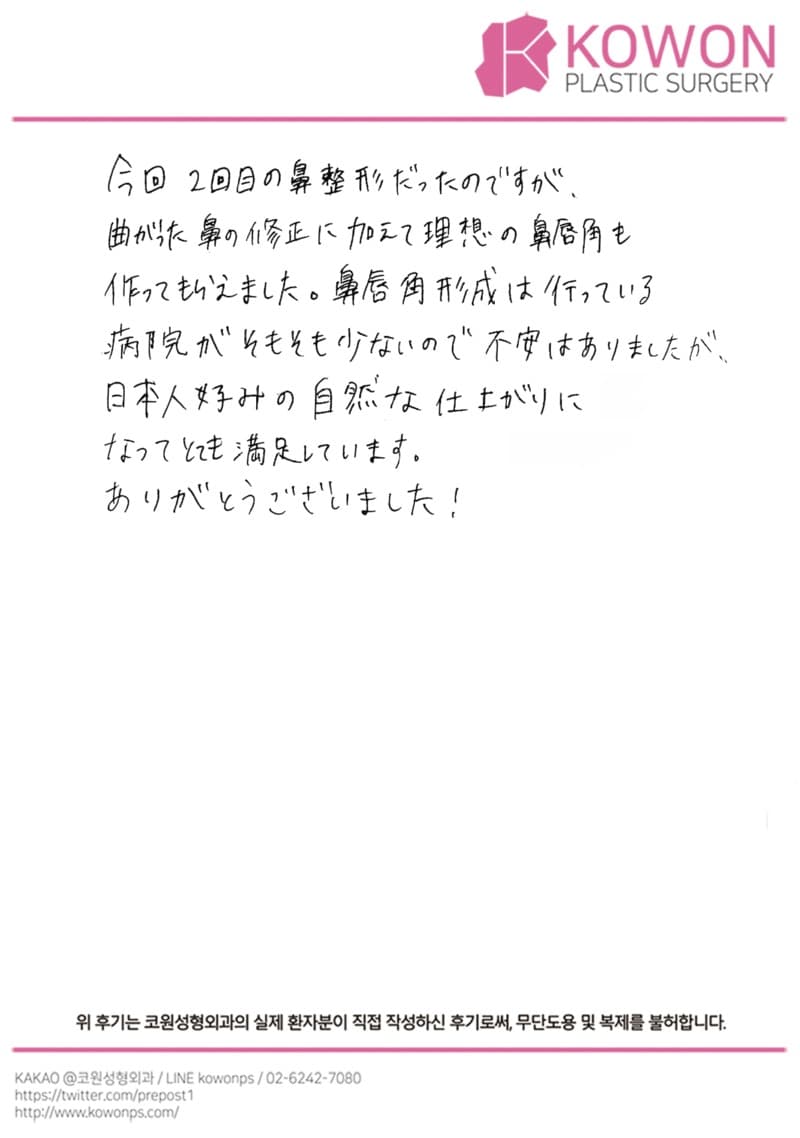 KOWON
PLASTIC SURGERY
今回 2回目の鼻整形だったのですが、
曲がった鼻の修正に加えて理想の鼻唇角も
作ってもらえました。鼻唇角形成は行っている
病院がそもそも少ないので不安はありましたが、
日本人好みの自然な仕上がりに
なってとても満足しています。
ありがとうございました!
위 후기는 코원성형외과의 실제 환자분이 직접 작성하신 후기로써, 무단도용 및 복제를 불허합니다.
KAKAO @코원성형외과 / LINE kowonps / 02-6242-7080
https://twitter.com/prepost1
http://www.kowonps.com/